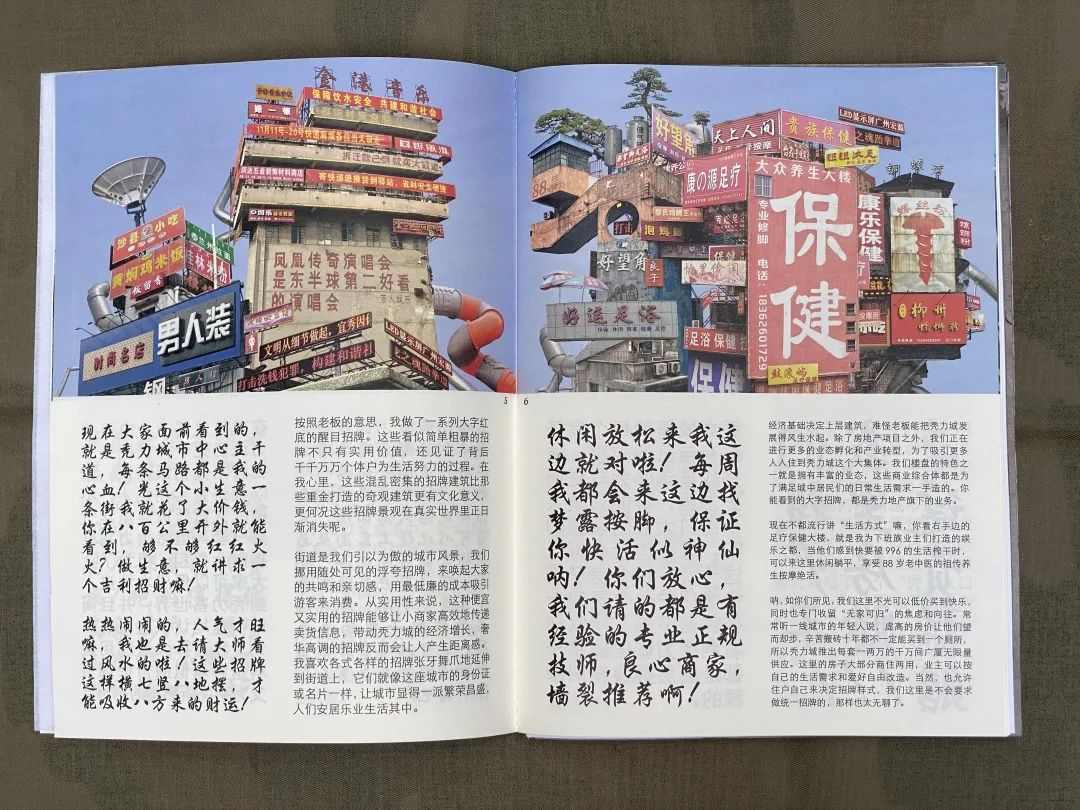 金港音乐
保障饮水安全 共建和谐社会
凤凰传奇演唱会
是东半球第二好看
的演唱会
沙县小吃
黄焖鸡米饭
桂林米粉
板留香
男人装
时尚名店
文明从细节做起，宜秀因你
LED显示屏广州宏
构建和谐社
打击洗钱犯罪，
5
现在大家面前看到的，
就是秃力城市中心主干
道，每条马路都是我的
心血！光这个小生意一
条街我就花了大价钱，
你在八百公里开外就能
看到，够不够红红火
火？做生意，就讲求一
个吉利招财嘛！
热热闹闹的，人气才旺
嘛，我也是去请大师看
过风水的啦！这些招牌
这样横七竖八地摆，才
能吸收八方来的财运！
按照老板的意思，我做了一系列大字红
底的醒目招牌。这些看似简单粗暴的招
牌不只有实用价值，还见证了背后
千千万万个体户为生活努力的过程。在
我心里，这些混乱密集的招牌建筑比那
些重金打造的奇观建筑更有文化意义，
更何况这些招牌景观在真实世界里正日
渐消失呢。
街道是我们引以为傲的城市风景，我们
挪用随处可见的浮夸招牌，来唤起大家
的共鸣和亲切感，用最低廉的成本吸引
游客来消费。从实用性来说，这种便宜
又实用的招牌能够让小商家高效地传递
卖货信息，带动秃力城的经济增长，奢
华高调的招牌反而会让人产生距离感。
我喜欢各式各样的招牌张牙舞爪地延伸
到街道上，它们就像这座城市的身份证
或名片一样，让城市显得一派繁荣昌盛，
人们安居乐业生活其中。
好望角
天上人间
贵族保健
LED显示屏广州宏
之魂跆拳道
康の源足疗
大众养生大楼
保健
专业修脚
电话：18362601729
康乐保健
螺丝粉
柳州
螺蛳粉
88
打击
泡鸡脚
好望角
好运足浴
足浴 保健
保健
6
休闲放松来我这
边就对啦！每周
我都会来这边找
梦露按脚，保证
你快活似神仙
呐！你们放心，
我们请的都是有
经验的专业正规
技师，良心商家，
墙裂推荐啊！
经济基础决定上层建筑，难怪老板能把秃力城发
展得风生水起。除了房地产项目之外，我们正在
进行更多的业态孵化和产业转型，为了吸引更多
人入住到秃力城这个大集体。我们楼盘的特色之
一就是拥有丰富的业态，这些商业综合体都是为
了满足城中居民们的日常生活需求一手造的。你
能看到的大字招牌，都是秃力地产旗下的业务。
现在不都流行讲“生活方式”嘛，你看右手边的
足疗保健大楼，就是我为下班族业主们打造的娱
乐之都，当他们感到快要被996的生活榨干时，
可以来这里休闲躺平，享受88岁老中医的祖传养
生按摩绝活。
呐，如你们所见，我们这里不光可以低价买到快乐，
同时也专门收留“无家可归”的焦虑和向往。常
常听一线城市的年轻人说，虚高的房价让他们望
而却步，辛苦搬砖十年都不一定能买到一个厕所，
所以秃力城推出每套一两万的千万间广厦无限量
供应。这里的房子大部分商住两用，业主可以按
自己的生活需求和爱好自由改造。当然，也允许
住户自己来决定招牌样式，我们这里是不会要求
做统一招牌的，那样也太无聊了。